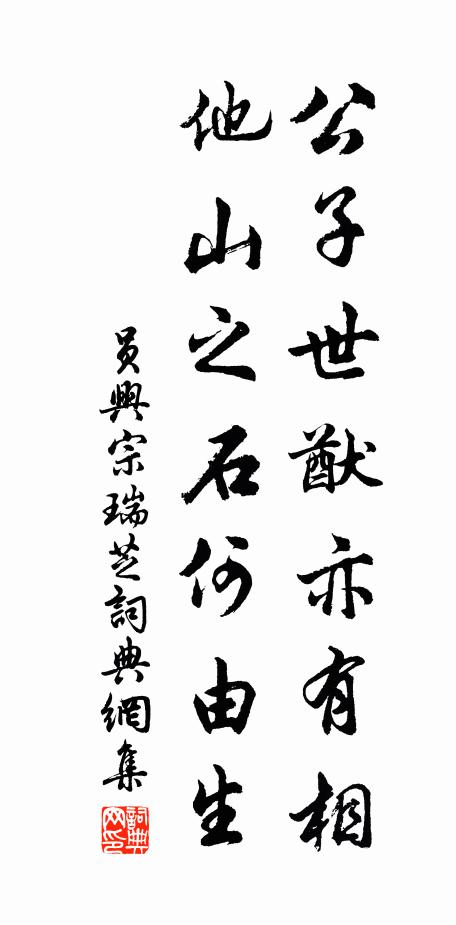 公子世猷亦有相
他山之石何由生
員興宗瑞芝詞典網集
詞典網印